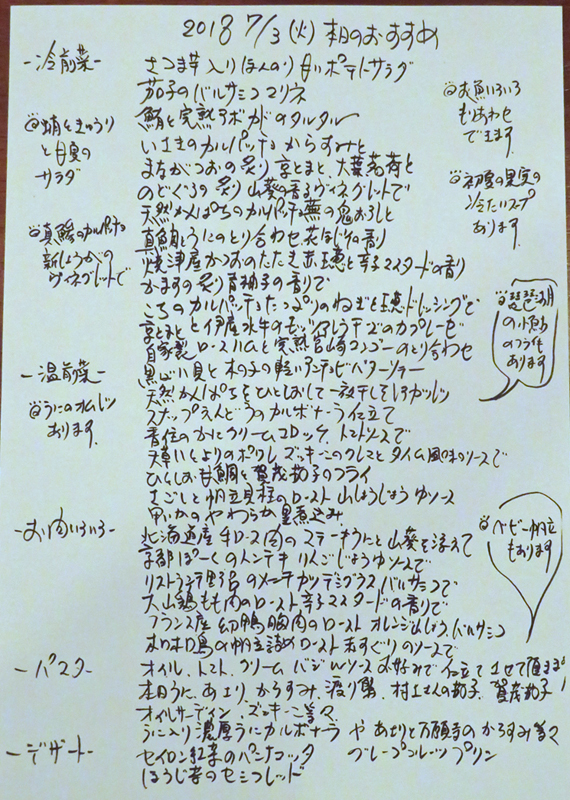 2018 7/3 (火) 本日のおすすめ
-冷前菜-
さつま芋入りほんのり甘いポテトサラダ
茄子のバルサミコマリネ
鮪と完熟アボカドのタルタル
いさきのカルパッチョ からすみと
まながつおの炙り 京とまと、大葉茗荷と
のどぐろの炙り 山葵の香るヴィネグレットで
天然かんぱちのカルパッチョ 蕪の鬼おろしと
真鯛とうにのとり合わせ 花ほじその香り
焼津産かつおのたたき 赤玉葱と辛子マスタードの香り
かますの炙り 青柚子の香りで
こちのカルパッチョ たっぷりのねぎと玉葱ドレッシングで
京とまとと伊産水牛のモッツァレラチーズのカプレーゼ
自家製ロースハムと完熟宮崎マンゴーのとり合わせ
@蛸ときゅうり
と甘夏の
サラダ
@真鯵のカルパッチョ
新しょうがの
ヴィネグレットで
@お魚いろいろ
もりあわせ
できます
@初夏の果実の
冷たいスープ
あります
@琵琶湖
の小鮎
のフライも
あります
-温前菜-
@うにのオムレツ
あります
黒ばい貝と木の子の軽いアンチョビバターソテー
天然かんぱちをひとしおして一夜干し
スナップえんどうのカルボナーラ仕立て
香住のかにクリームコロッケ、トマトソースで
天草いしよりのポワレ ズッキーニのクレマとタイム風味のソースで
ひらしお甘鯛と賀茂茄子のフライ
さごしと帆立貝柱のロースト 山しょうしょうゆソース
甲いかのやわらか墨煮込み
-お肉いろいろ-
北海道産牛ロース肉のステーキうにと山葵を添えて
京都ぽーくのトンテキ りんごじょうゆソースで
リストランテ野呂のメンチカツ デミグラスバルサミコで
大山鶏もも肉のロースト 辛子マスタードの香りで
フランス産 幼鴨胸肉のロースト オレンジ バルサミコ
ホロホロ鳥の帆立詰めロースト 赤すぐりのソースで
@ベビー帆立
もあります
-パスタ-
オイル、トマト、クリーム バジルソース お好みで仕立てさせて頂きます
本日うに、あさり、からすみ、渡り蟹、村上さんの茄子、賀茂茄子
オイルサーディン、ズッキーニ等々
うに入り濃厚うにカルボナーラ や あさりと万願寺のからすみ等々
-デザート-
セイロン紅茶のパンナコッタ グレープフルーツプリン
ほうじ茶のセミフレッド